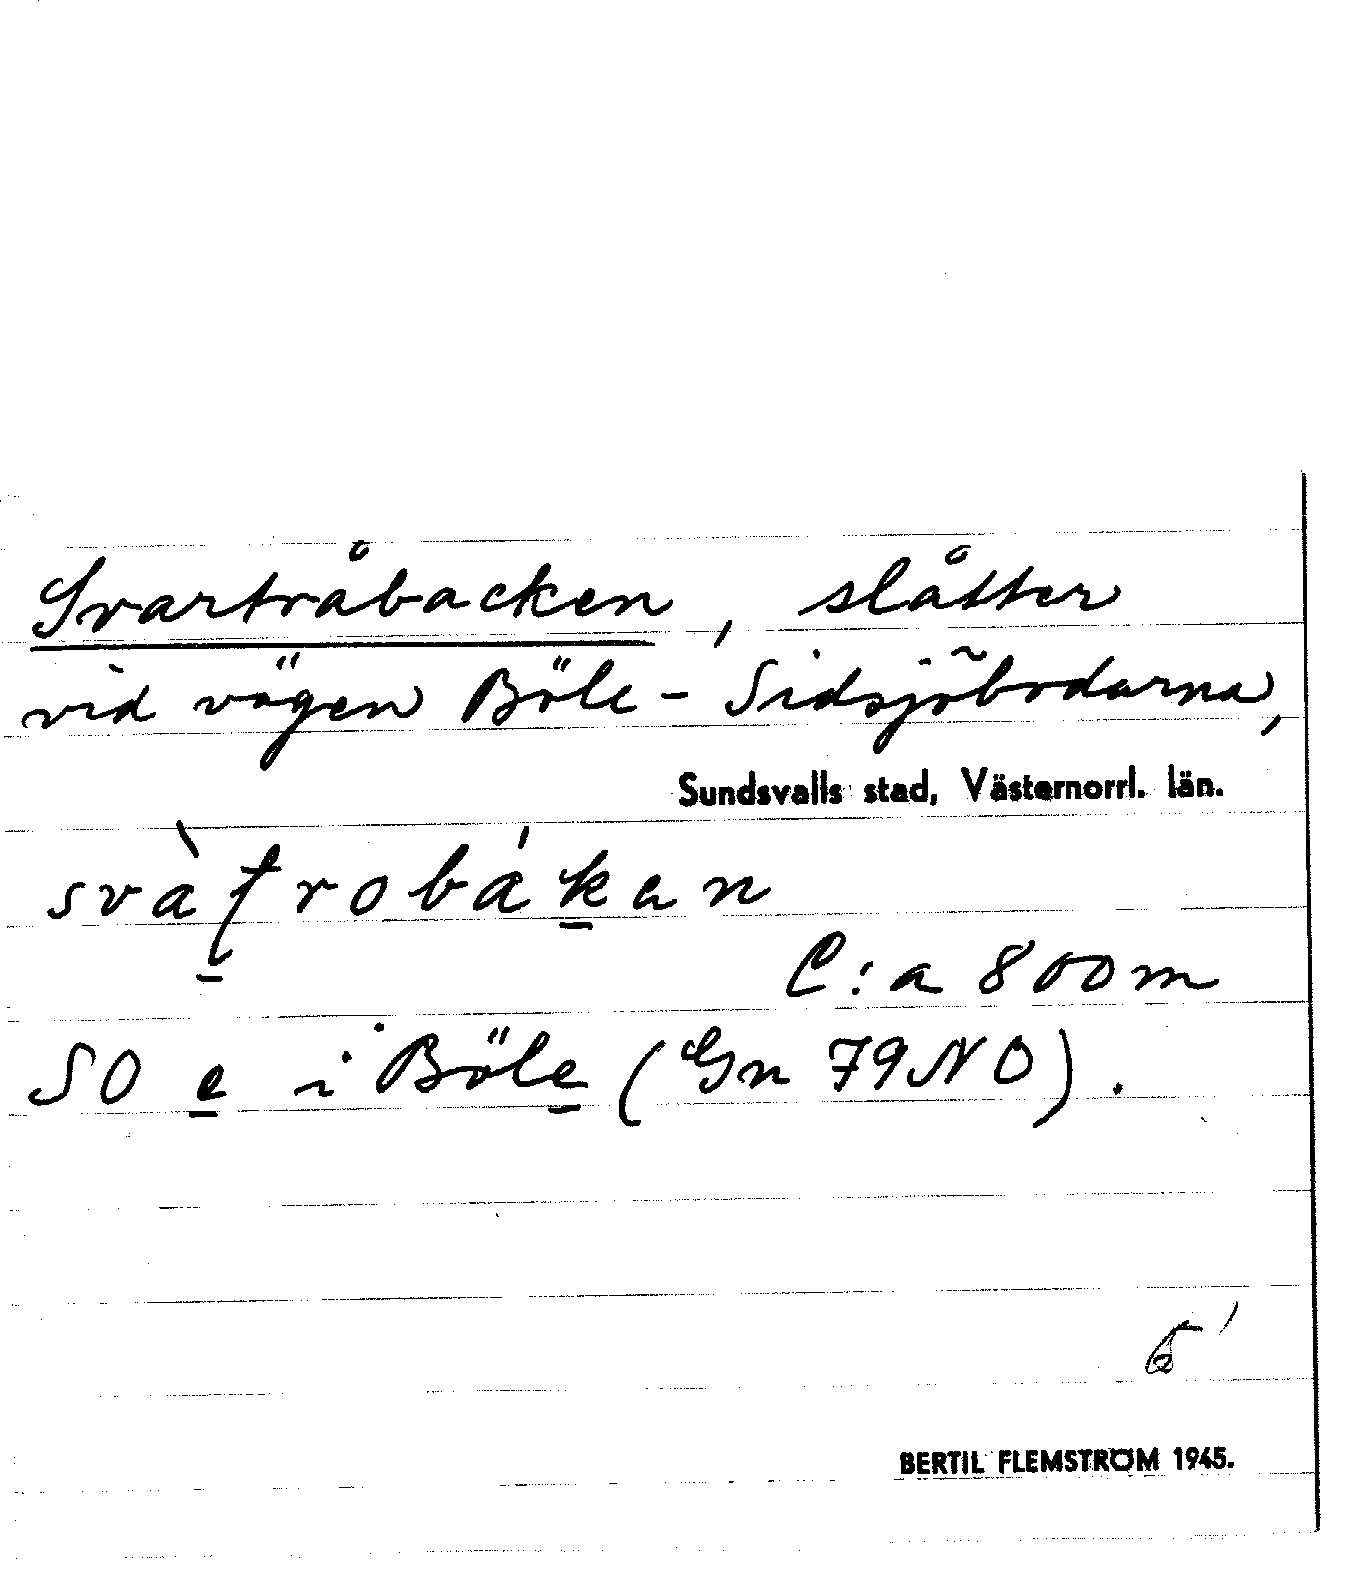 Svartråbacken, slåtter
vid vägen Böle - Sidsjöbodarna,
Sundsvalls stad, Västernorrl. län.
C:a 800 m
SO e i Böle (Gn 79 NO).
BERTIL FLEMSTRÖM 1945.